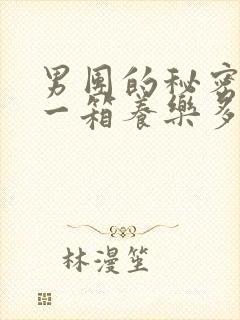 男团的秘密
一箱养樂多
林漫笙